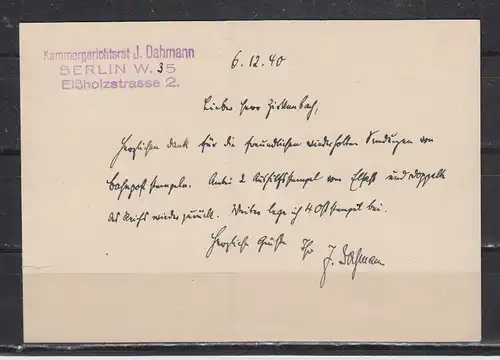 Kammergerichtsrat J. Dahmann
BERLIN W. 35
Elßholzstrasse 2.
6.12.40
Lieber Herr
Herzlichen Dank für die freundlichen wiederholten Sendungen von
Bahnpoststempeln. Anbei 2 Aushilfsstempel von Elsaß und doppelte
des Reichs wieder zurück. Weiter lege ich 4 Oststempel bei.
Herzliche Grüße Ihr J. Dahmann